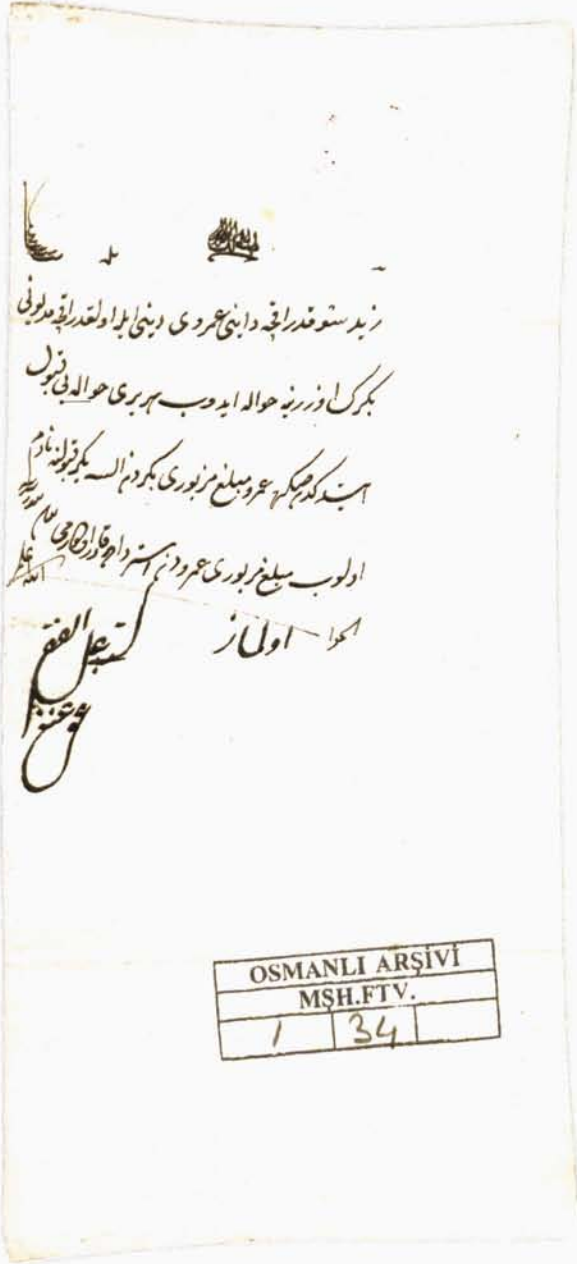 زيد شو قدر اقچه دايني عمروى ديني ايله اولقدر اقچه مديوني
بكرك اوزرينه حواله ايدوب هر برى حواله يى قبول
ايتدكدنصكره عمرو مبلغ مزبورى بكردن السه بكر قبولنه نادم
اولوب مبلغ مزبورى عمرودن استرداده قادر اولورمى
الجواب اولماز
الله اعلم
كتبه على الفقير
عفى عنه
OSMANLI ARŞİVİ
MŞH.FTV.
1 34